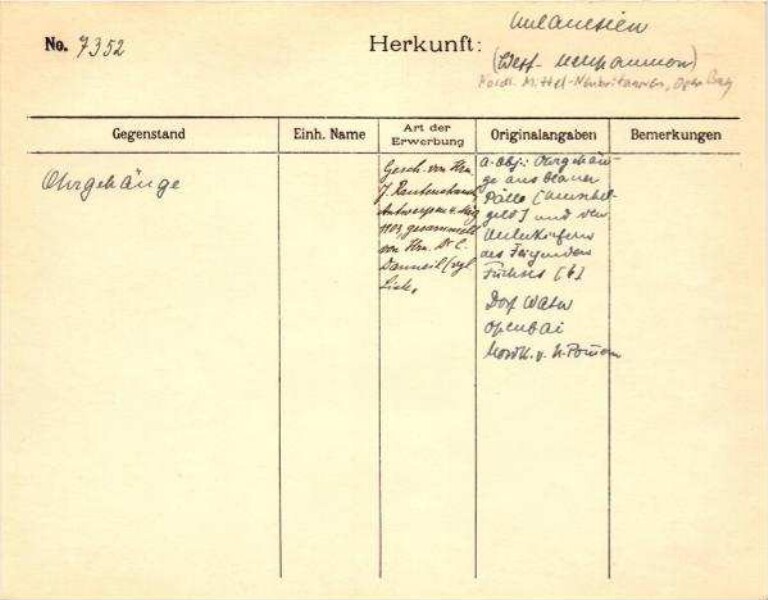 No. 7352
Herkunft:
Melanesien
(West-Neupommern)
Nördl. Mittel-Neubritannien, Open Bay
Gegenstand
Einh. Name
Art der Erwerbung
Originalangaben
Bemerkungen
Ohrgehänge
Gesch. von Hrn.
J. Rautenstrauch
Antwerpen
1103, gesammelt
von Hrn. Dr C.
Danneil (vgl
Liste,
a. Obj.: Ohrgehän-
ge aus blauer
Palle (Muschel-
geld) und den
Unterkiefern
des fliegenden
Fuchses (b)
Dorf Watu
Openbai
Nordk. v. N. Pomm